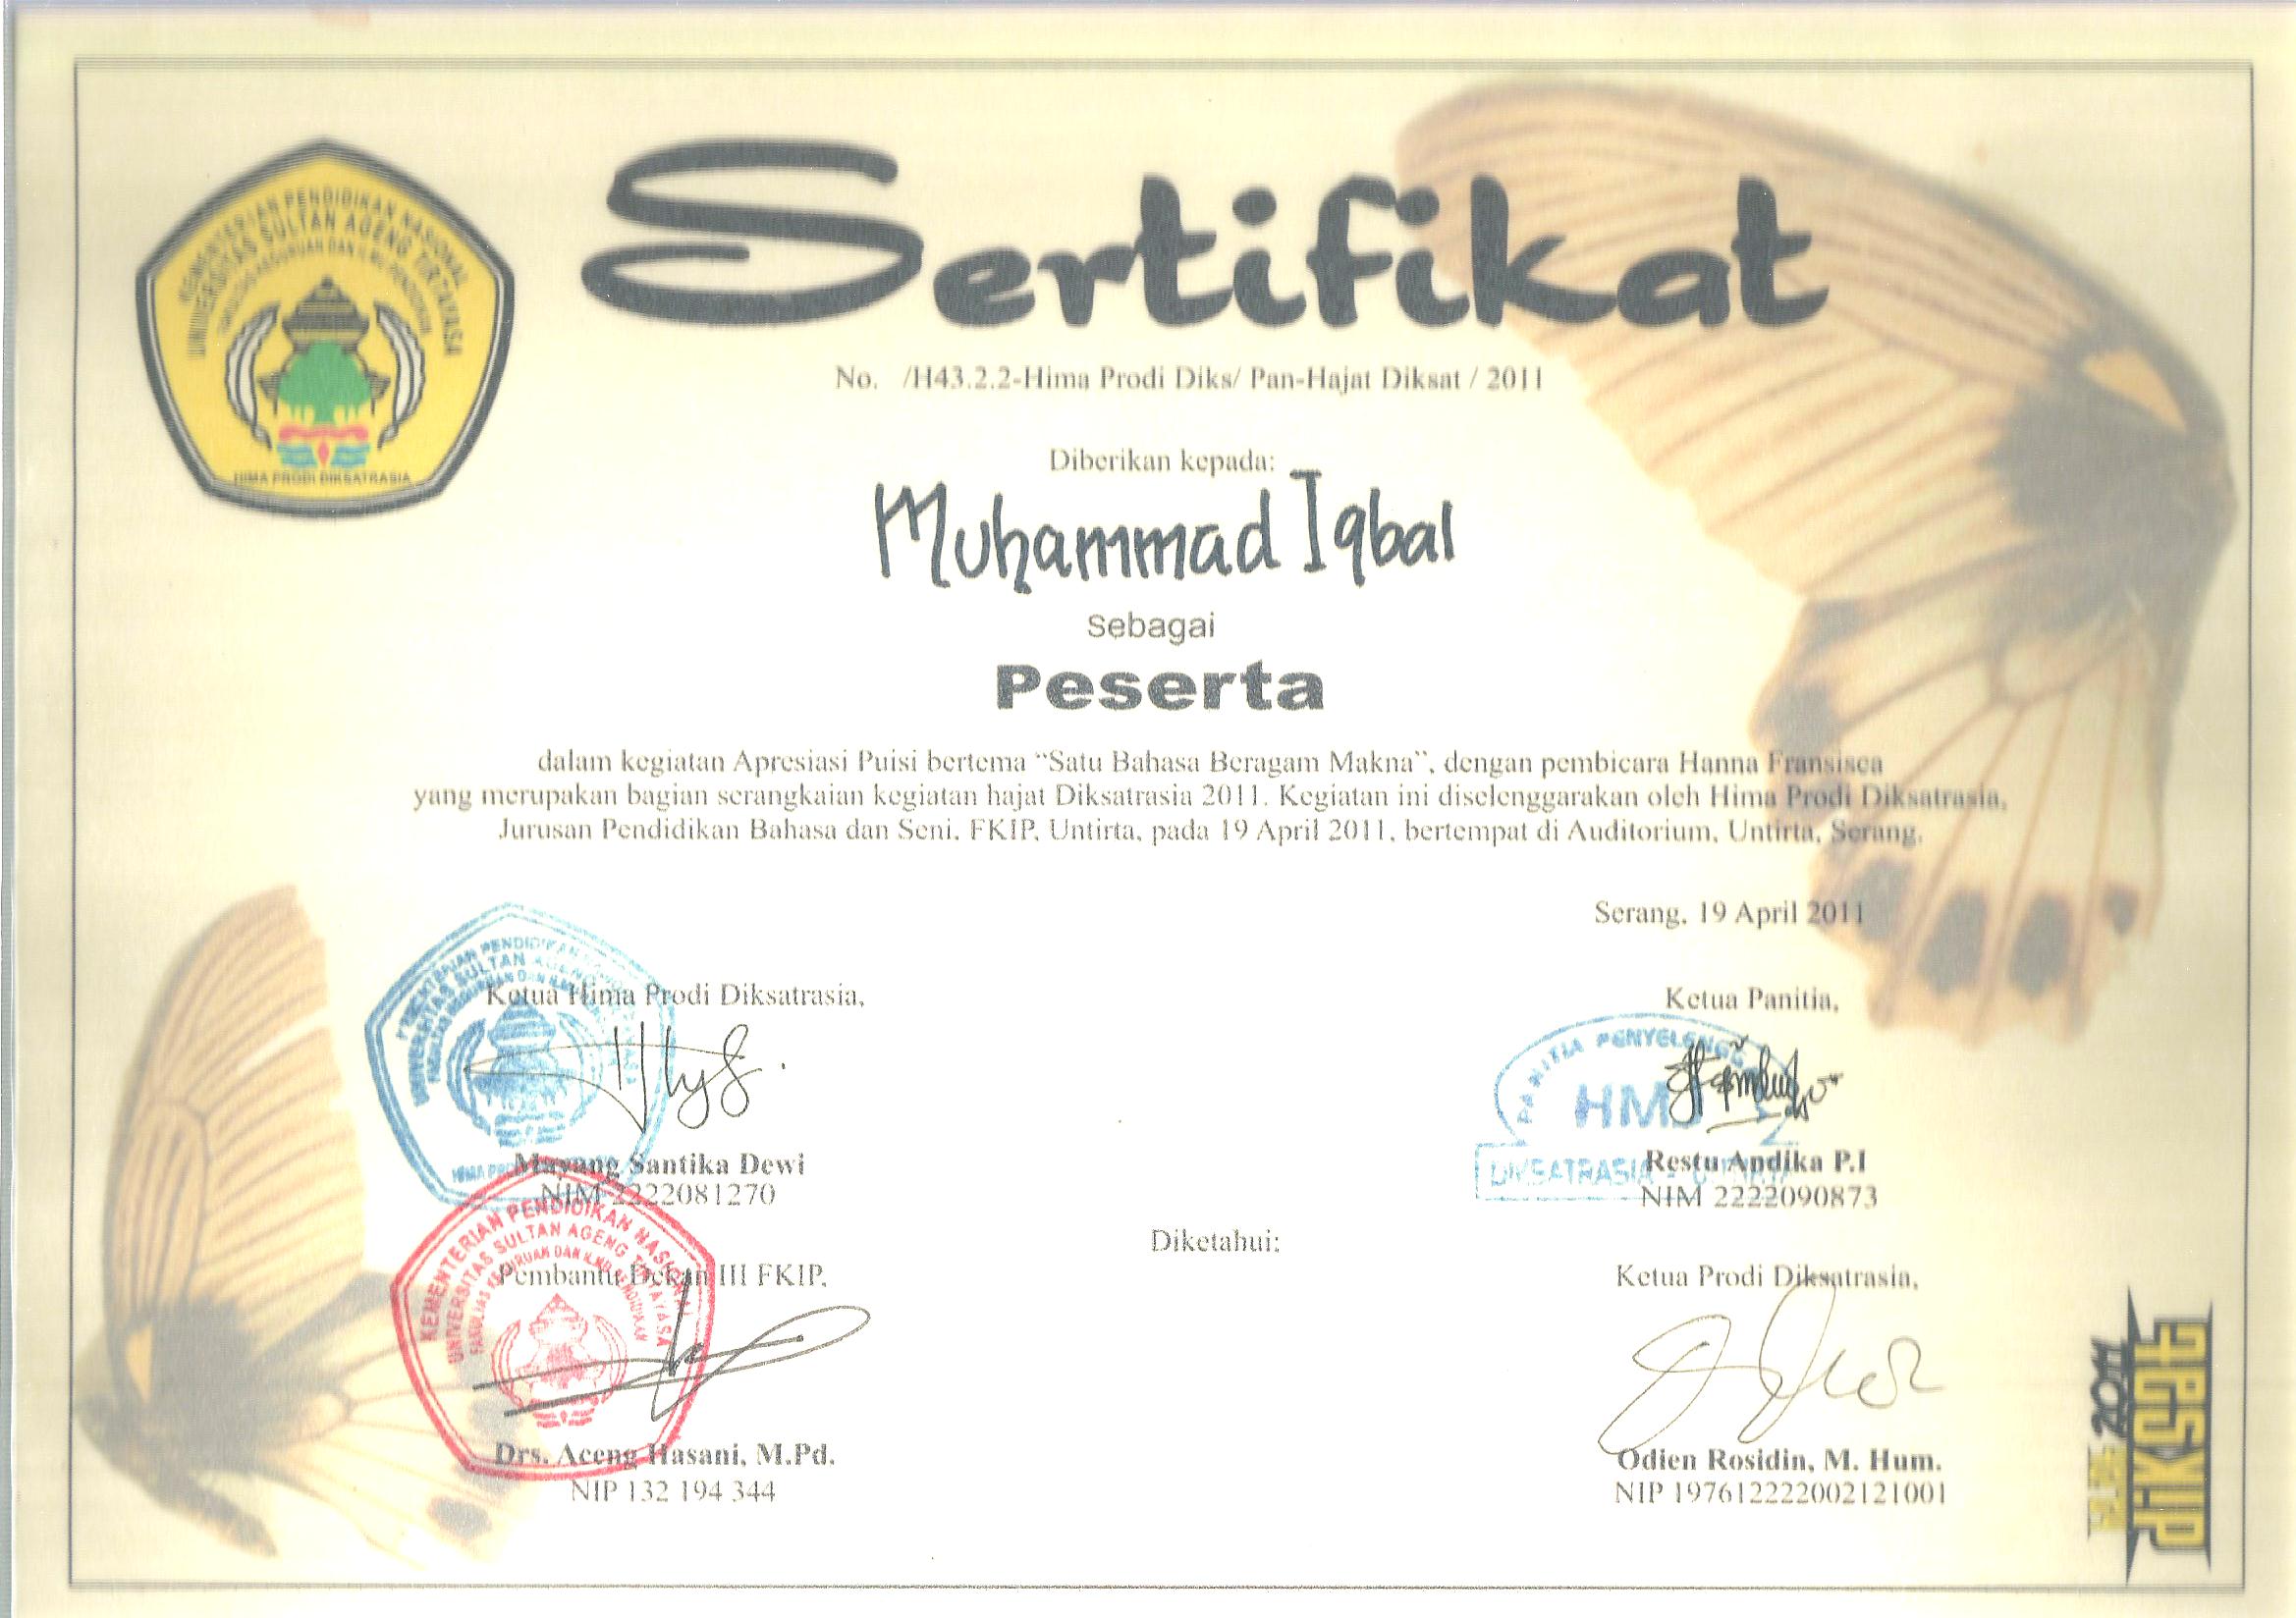 KEMENTERIAN PENDIDIKAN NASIONAL
UNIVERSITAS SULTAN AGENG TIRTAYASA
FAKULTAS KEGURUAN DAN ILMU PENDIDIKAN
HIMA PRODI DIKSATRASIA
Sertifikat
No. /H43.2.2-Hima Prodi Diks/ Pan-Hajat Diksat / 2011
Diberikan kepada:
Muhammad Iqbal
sebagai
Peserta
dalam kegiatan Apresiasi Puisi bertema “Satu Bahasa Beragam Makna”, dengan pembicara Hanna Fransisca
yang merupakan bagian serangkaian kegiatan hajat Diksatrasia 2011. Kegiatan ini diselenggarakan oleh Hima Prodi Diksatrasia,
Jurusan Pendidikan Bahasa dan Seni, FKIP, Untirta, pada 19 April 2011, bertempat di Auditorium, Untirta, Serang.
Serang, 19 April 2011
Ketua Hima Prodi Diksatrasia,
Ketua Panitia,
PANITIA PENYELENGG
HM
DIKSATRASIA -
Mayang Santika Dewi
NIM 2222081270
Restu Andika P.I
NIM 2222090873
Diketahui:
KEMENTERIAN PENDIDIKAN NASIONAL
UNIVERSITAS SULTAN AGENG TIRTAYASA
FAKULTAS KEGURUAN DAN ILMU PENDIDIKAN
Pembantu Dekan III FKIP,
Ketua Prodi Diksatrasia,
Drs. Aceng Hasani, M.Pd.
NIP 132 194 344
Odien Rosidin, M. Hum.
NIP 197612222002121001
hajat 2011
diksat